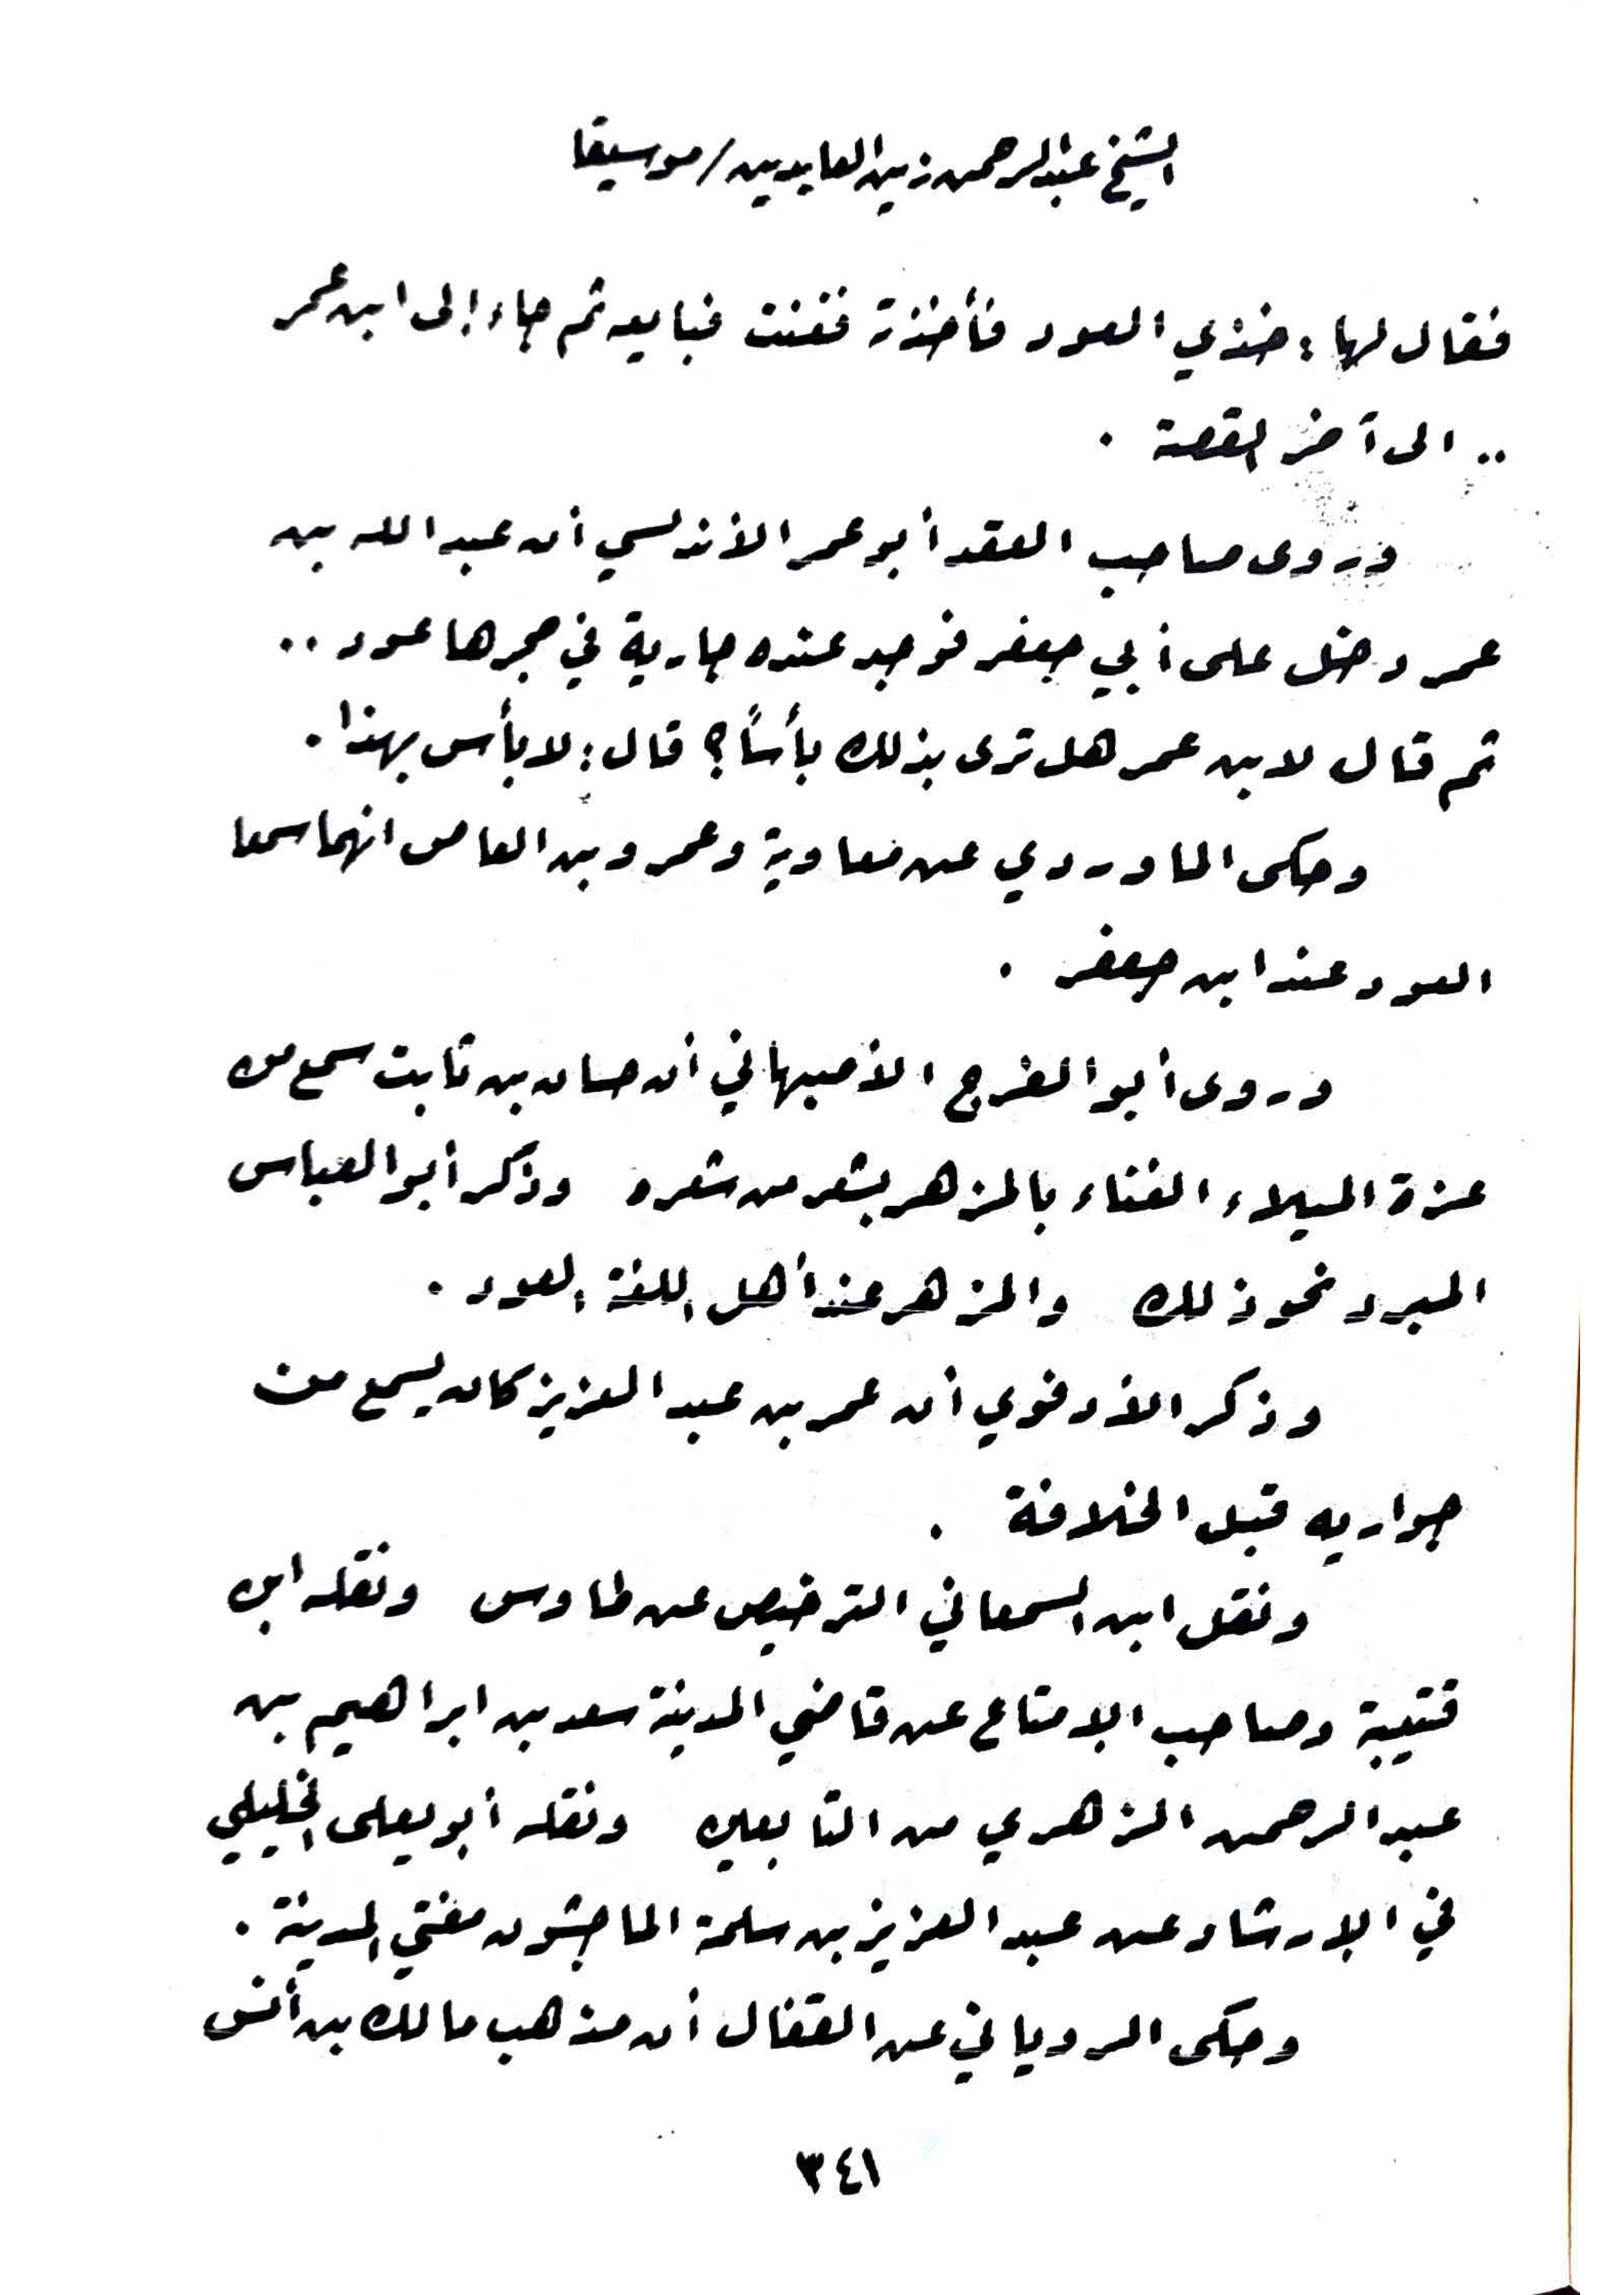 الشيخ عبدالرحمن زين العابدين/موسيقا
فقال لها: خذي العود فأخذة فغنت فبايعه ثم جاء إلى ابن عمر
.. الى آخر القصة .
وروى صاحب العقد أبو عمر الأندلسي أن عبد الله بن
عمر دخل على أبي جعفر فوجد عنده جارية في حجرها عود ..
ثم قال لابن عمر هل ترى بذلك بأساً؟ قال: لا بأس بهذا .
وحكى الماوردي عن معاوية وعمرو بن العاص انهما سمعا
العود عند ابن جعفر .
وروى أبو الفرج الأصبهاني أن حسان بن ثابت سمع من
عزة الميلاء الغناء بالمزهر بشعر من شعره وذكر أبو العباس
المبرد نحو ذلك والمزهر عند أهل اللغة العود .
وذكر الأدفوي أن عمر بن عبد العزيز كان يسمع من
جواريه قبل الخلافة .
ونقل ابن السمعاني الترخيص عن طاوس ونقله ابن
قتيبة وصاحب الإمتاع عن قاضي المدينة سعد بن ابراهيم بن
عبد الرحمن الزهري من التابعين ونقله أبو يعلى الخليلي
في الإرشاد عن عبد العزيز بن سلمة الماجشون مفتي المدينة .
وحكى الروياني عن القفال أن مذهب مالك بن أنس
٣٤١